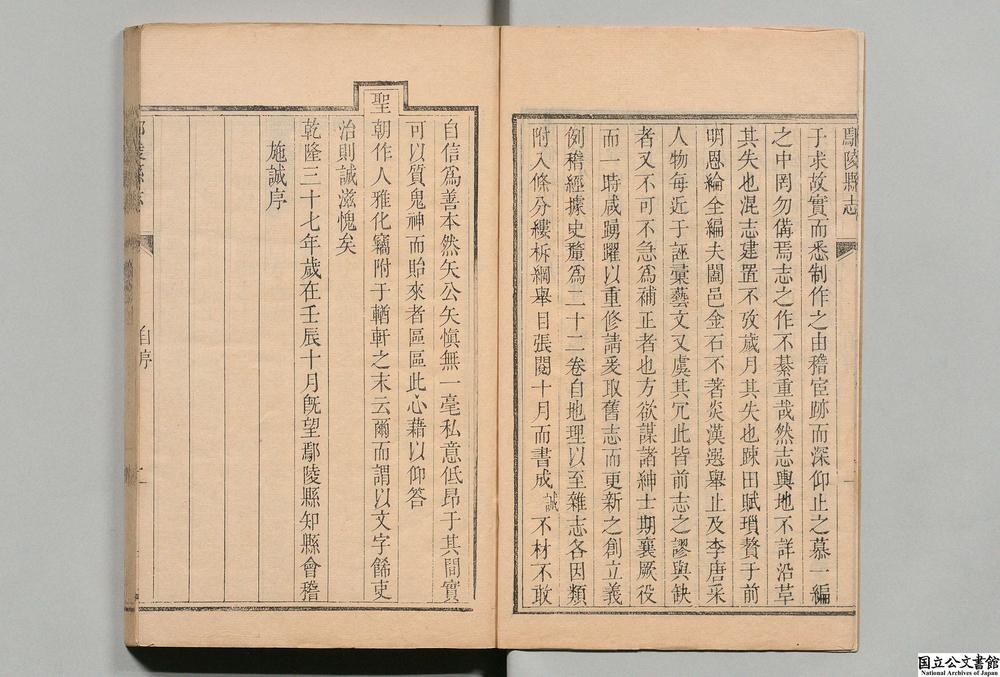 鄢陵縣志
于求故實而悉制作之由稽宦跡而深仰止之慕一編
之中罔勿備焉志之作不綦重哉然志輿地不詳沿革
其失也混志建置不攷歲月其失也踈田賦瑣贅于前
明恩綸全編夫闔邑金石不著炎漢選舉止及李唐采
人物每近于誣彚藝文又虞其冗此皆前志之謬與缺
者又不可不急爲補正者也方欲謀諸紳士期襄厥役
而一時咸踴躍以重修請爰取舊志而更新之創立義
例稽經據史釐爲二十二卷自地理以至雜志各因類
附入條分縷柝綱舉目張閱十月而書成誠不材不敢
自信爲善本然矢公矢愼無一毫私意低昂于其間實
可以質鬼神而貽來者區區此心藉以仰答
聖朝作人雅化竊附于輶軒之末云爾而謂以文字餙吏
治則誠滋愧矣
乾隆三十七年歲在壬辰十月旣望鄢陵縣知縣會稽
施誠序
自序
国立公文書館
National Archives of Japan